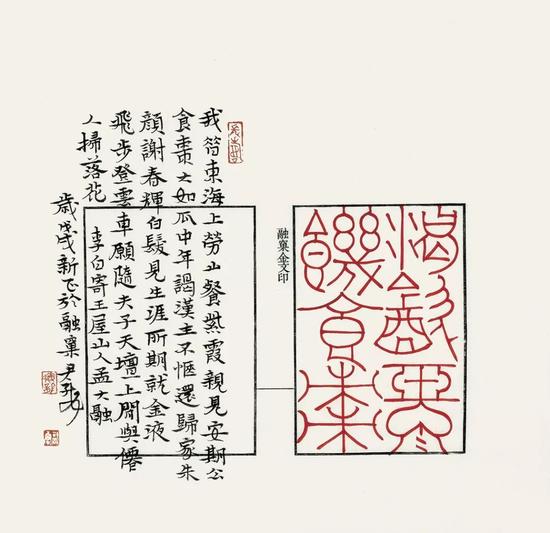 渴飲玉泉
饑食棗
融巢金文印
我昔東海上勞山餐紫霞親見安期公
食棗大如瓜中年謁漢主不愜還歸家朱
顏謝春輝白髮見生涯所期就金液
飛步登雲車願隨夫子天壇上閒與僊
人掃落花 李白寄王屋山人孟大融
歲戌新正於融巢尹